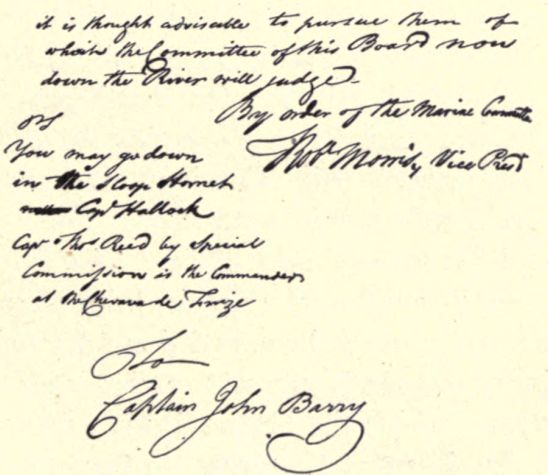 it is thought advisable to pursue them of
which the Committee of this Board now
down the River will judge.
By order of the Marine Committee
Robt Morris, Vice Presdt
PS
You may go down
in the Sloop Hornet
Capt Hallock
Capt Thos Read by Special
Commission is the Commander
at the Chevaux de Frize
To
Captain John Barry